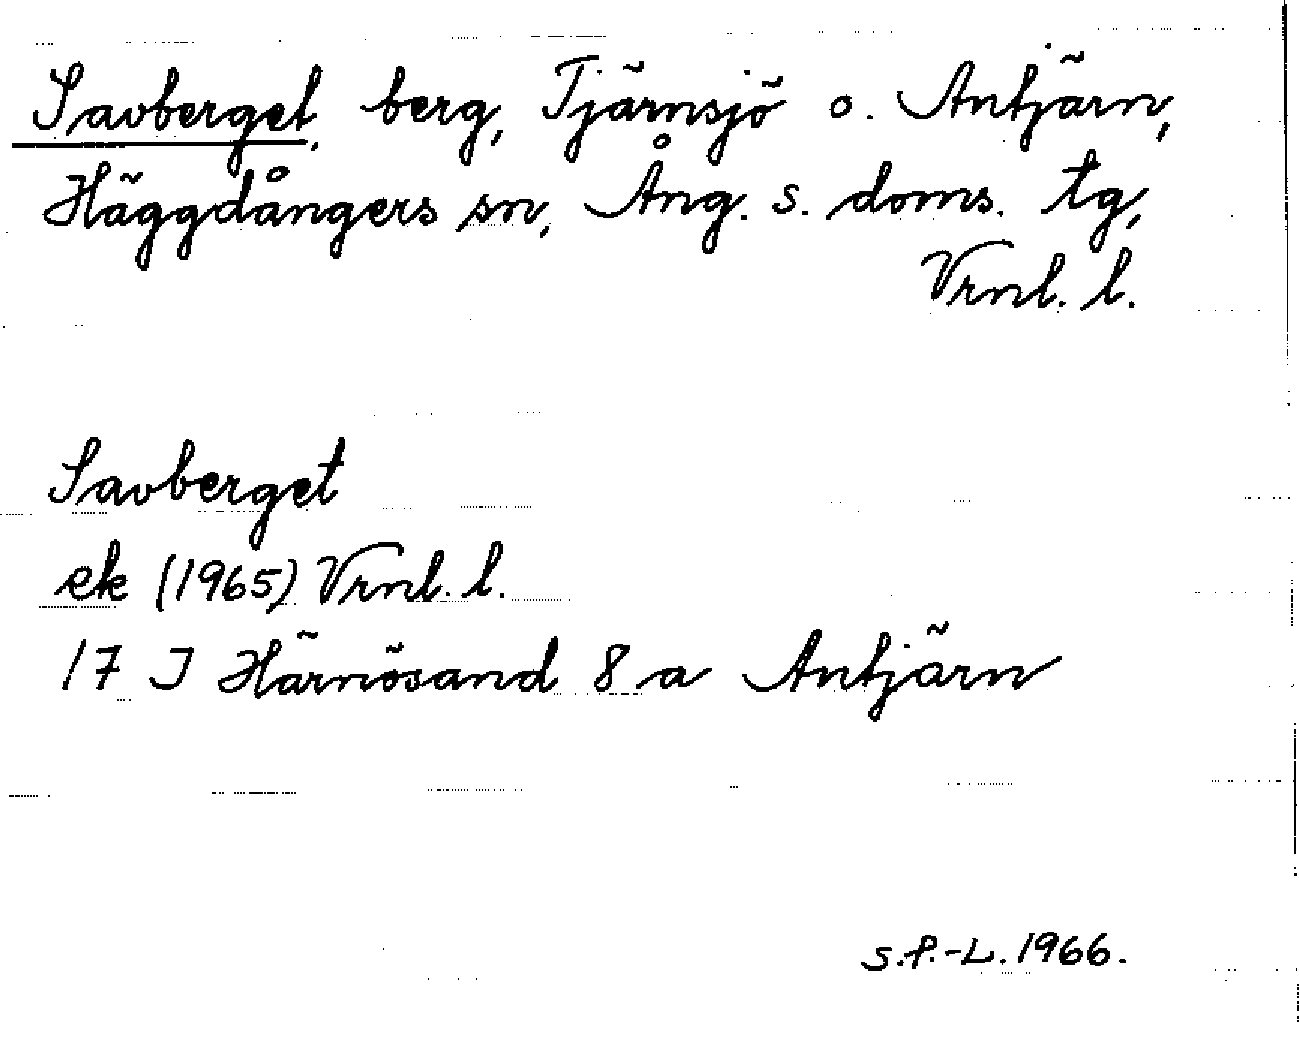 Savberget, berg, Tjärnsjö o. Antjärn,
Häggdångers sn, Ång. s. doms. tg,
Vrnl. l.
Savberget
ek (1965) Vrnl. l.
17 J Härnösand 8 a Antjärn
s.f.-L. 1966.